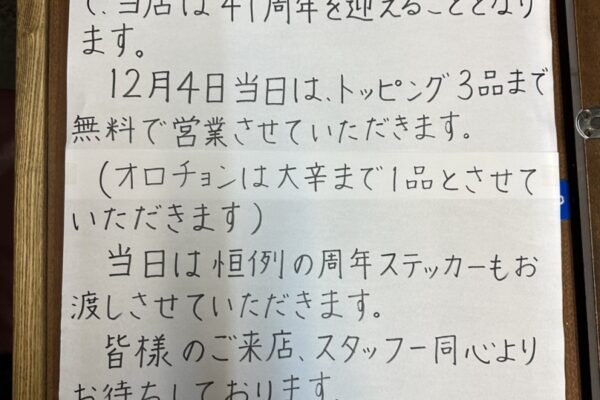 て、当店は41周年を迎えることとなり
ます。
12月4日当日は、トッピング3品まで
無料で営業させていただきます。
(オロチョンは大辛まで1品とさせて
いただきます)
当日は恒例の周年ステッカーもお
渡しさせていただきます。
皆様のご来店、スタッフ一同心より
お待ちしております。